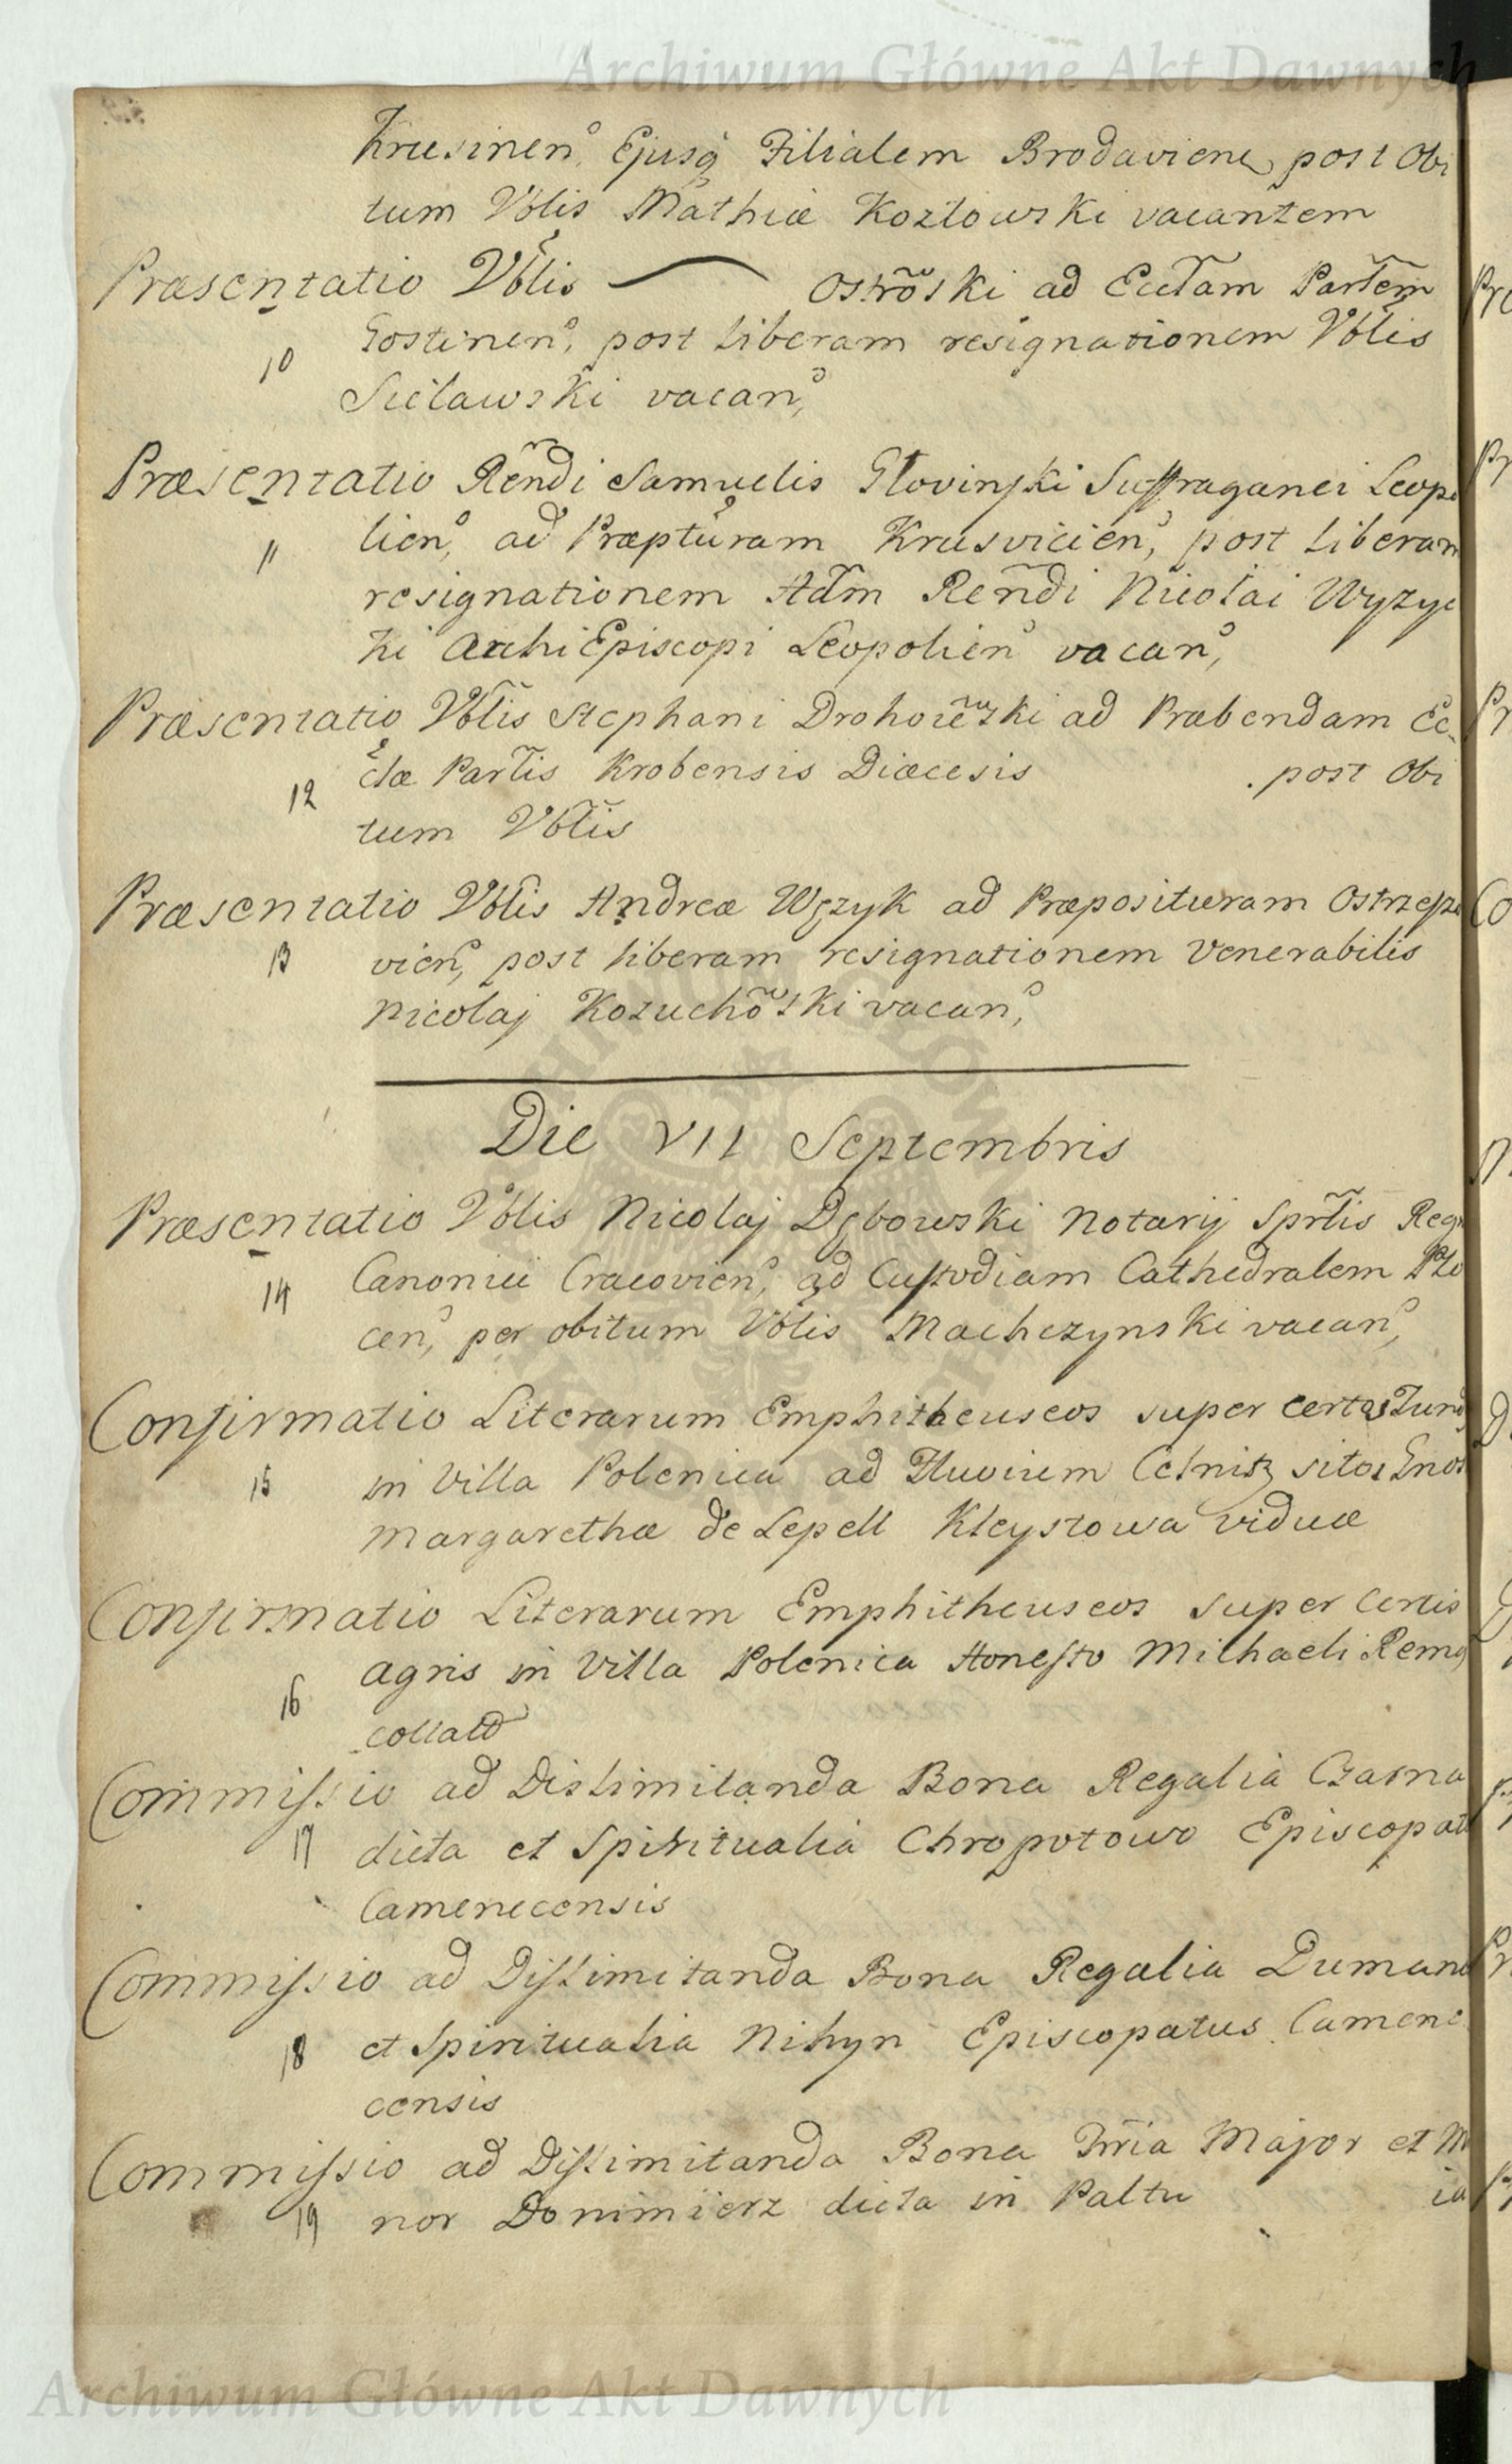 Archiwum Główne Akt Dawnych
Krusinen, Ejusq Filialem Brodaviens post Obi
tum Vblis Mathiæ Kozłowski vacantem
Præsentatio Vblis Ostrowski ad Eccłam Parlem
10 Gostinen, post liberam resignationem Vblis
Sielawski vacan,
Præsentatio Rendi Samuelis Głovinski Suffraganei Leopo
11 lien, ad Præpturam Krusvicien, post liberam
resignationem Adm Rendi Nicolai Wyzyc
ki ArchiEpiscopi Leopolien vacan,
Præsentatio Vblis Stephani Drohoiewski ad Præbendam Ec
12 clæ Parlis Krobensis Diæcesis . post Obi
tum Vblis
Præsentatio Vblis Andreæ Węzyk ad Præposituram Ostrzeszo
13 vien, post liberam resignationem Venerabilis
Nicolaj Kozuchowski vacan,
Die VII Septembris
Præsentatio Vblis Nicolaj Dębowski Notarij Sprlis Regn
14 Canonici Cracovien, ad Custodiam Cathedralem Plo
cen, per obitum Vblis Machczynski vacan,
Confirmatio Literarum Emphitheuseos super certos Fund
15 in Villa Polenica ad Fluvium sitos Gnos
Margarethæ de Lepell Kleystowa viduæ
Confirmatio Literarum Emphitheuseos super Certis
16 agris in Villa Polenica Honesto Michaeli Remg
collato
Commissio ad Dislimitanda Bona Regalia Czarna
17 dicta et Spiritualia Chropotowo Episcopat
Camenecensis
Commissio ad Dislimitanda Bona Regalia Dumano
18 et Spiritualia Nihyn Episcopatus Camene
censis
Commissio ad Dislimitanda Bona Trria Major et Mi
19 nor Donimierz dicta in Paltu ia
Archiwum Główne Akt Dawnych